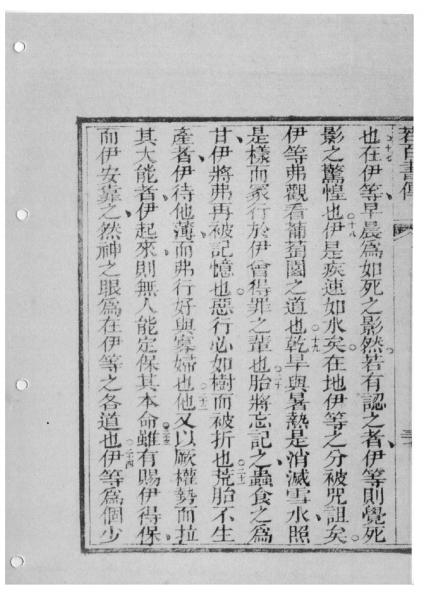 若百書傳
也在伊等早晨爲如死之影然若有認之者伊等則覺死
影之驚惶也○十八伊是疾速如水矣在地伊等之分被咒詛矣
伊等弗觀看葡萄園之道也○十九乾旱與暑熱是消滅雪水照
是樣而冢行於伊曾得罪之輩也○二十胎將忘記之蟲食之爲
甘伊將弗再被記憶也惡行必如樹而被折也○二十一荒胎不生
產者伊待他薄而弗行好與寡婦也○二十二他又以厥權勢而拉
其大能者伊起來則無人能定保其本命○二十三雖有賜伊得保
而伊安靠之然神之眼爲在伊等之各道也○二十四伊等爲個少